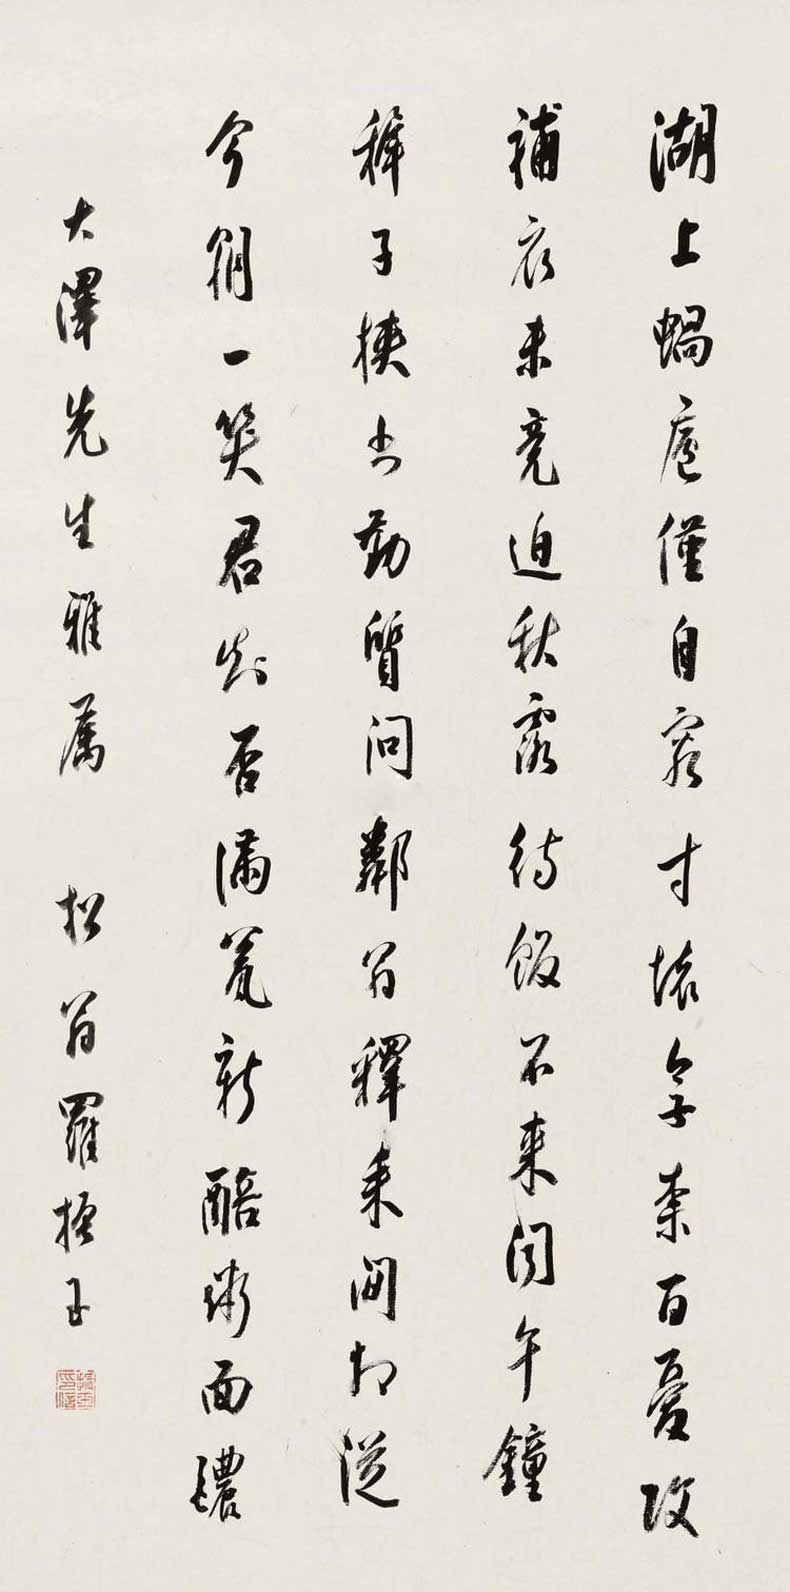 湖上蝸廬僅自容寸懷無柰百憂攻
補衣未竟迫秋露待飯不來聞午鐘
稺子挾書勤質問鄰翁釋耒間相從
今朝一笑君知否滿甕新醅粥面醲
大澤先生雅屬 松翁羅振玉
振玉印信